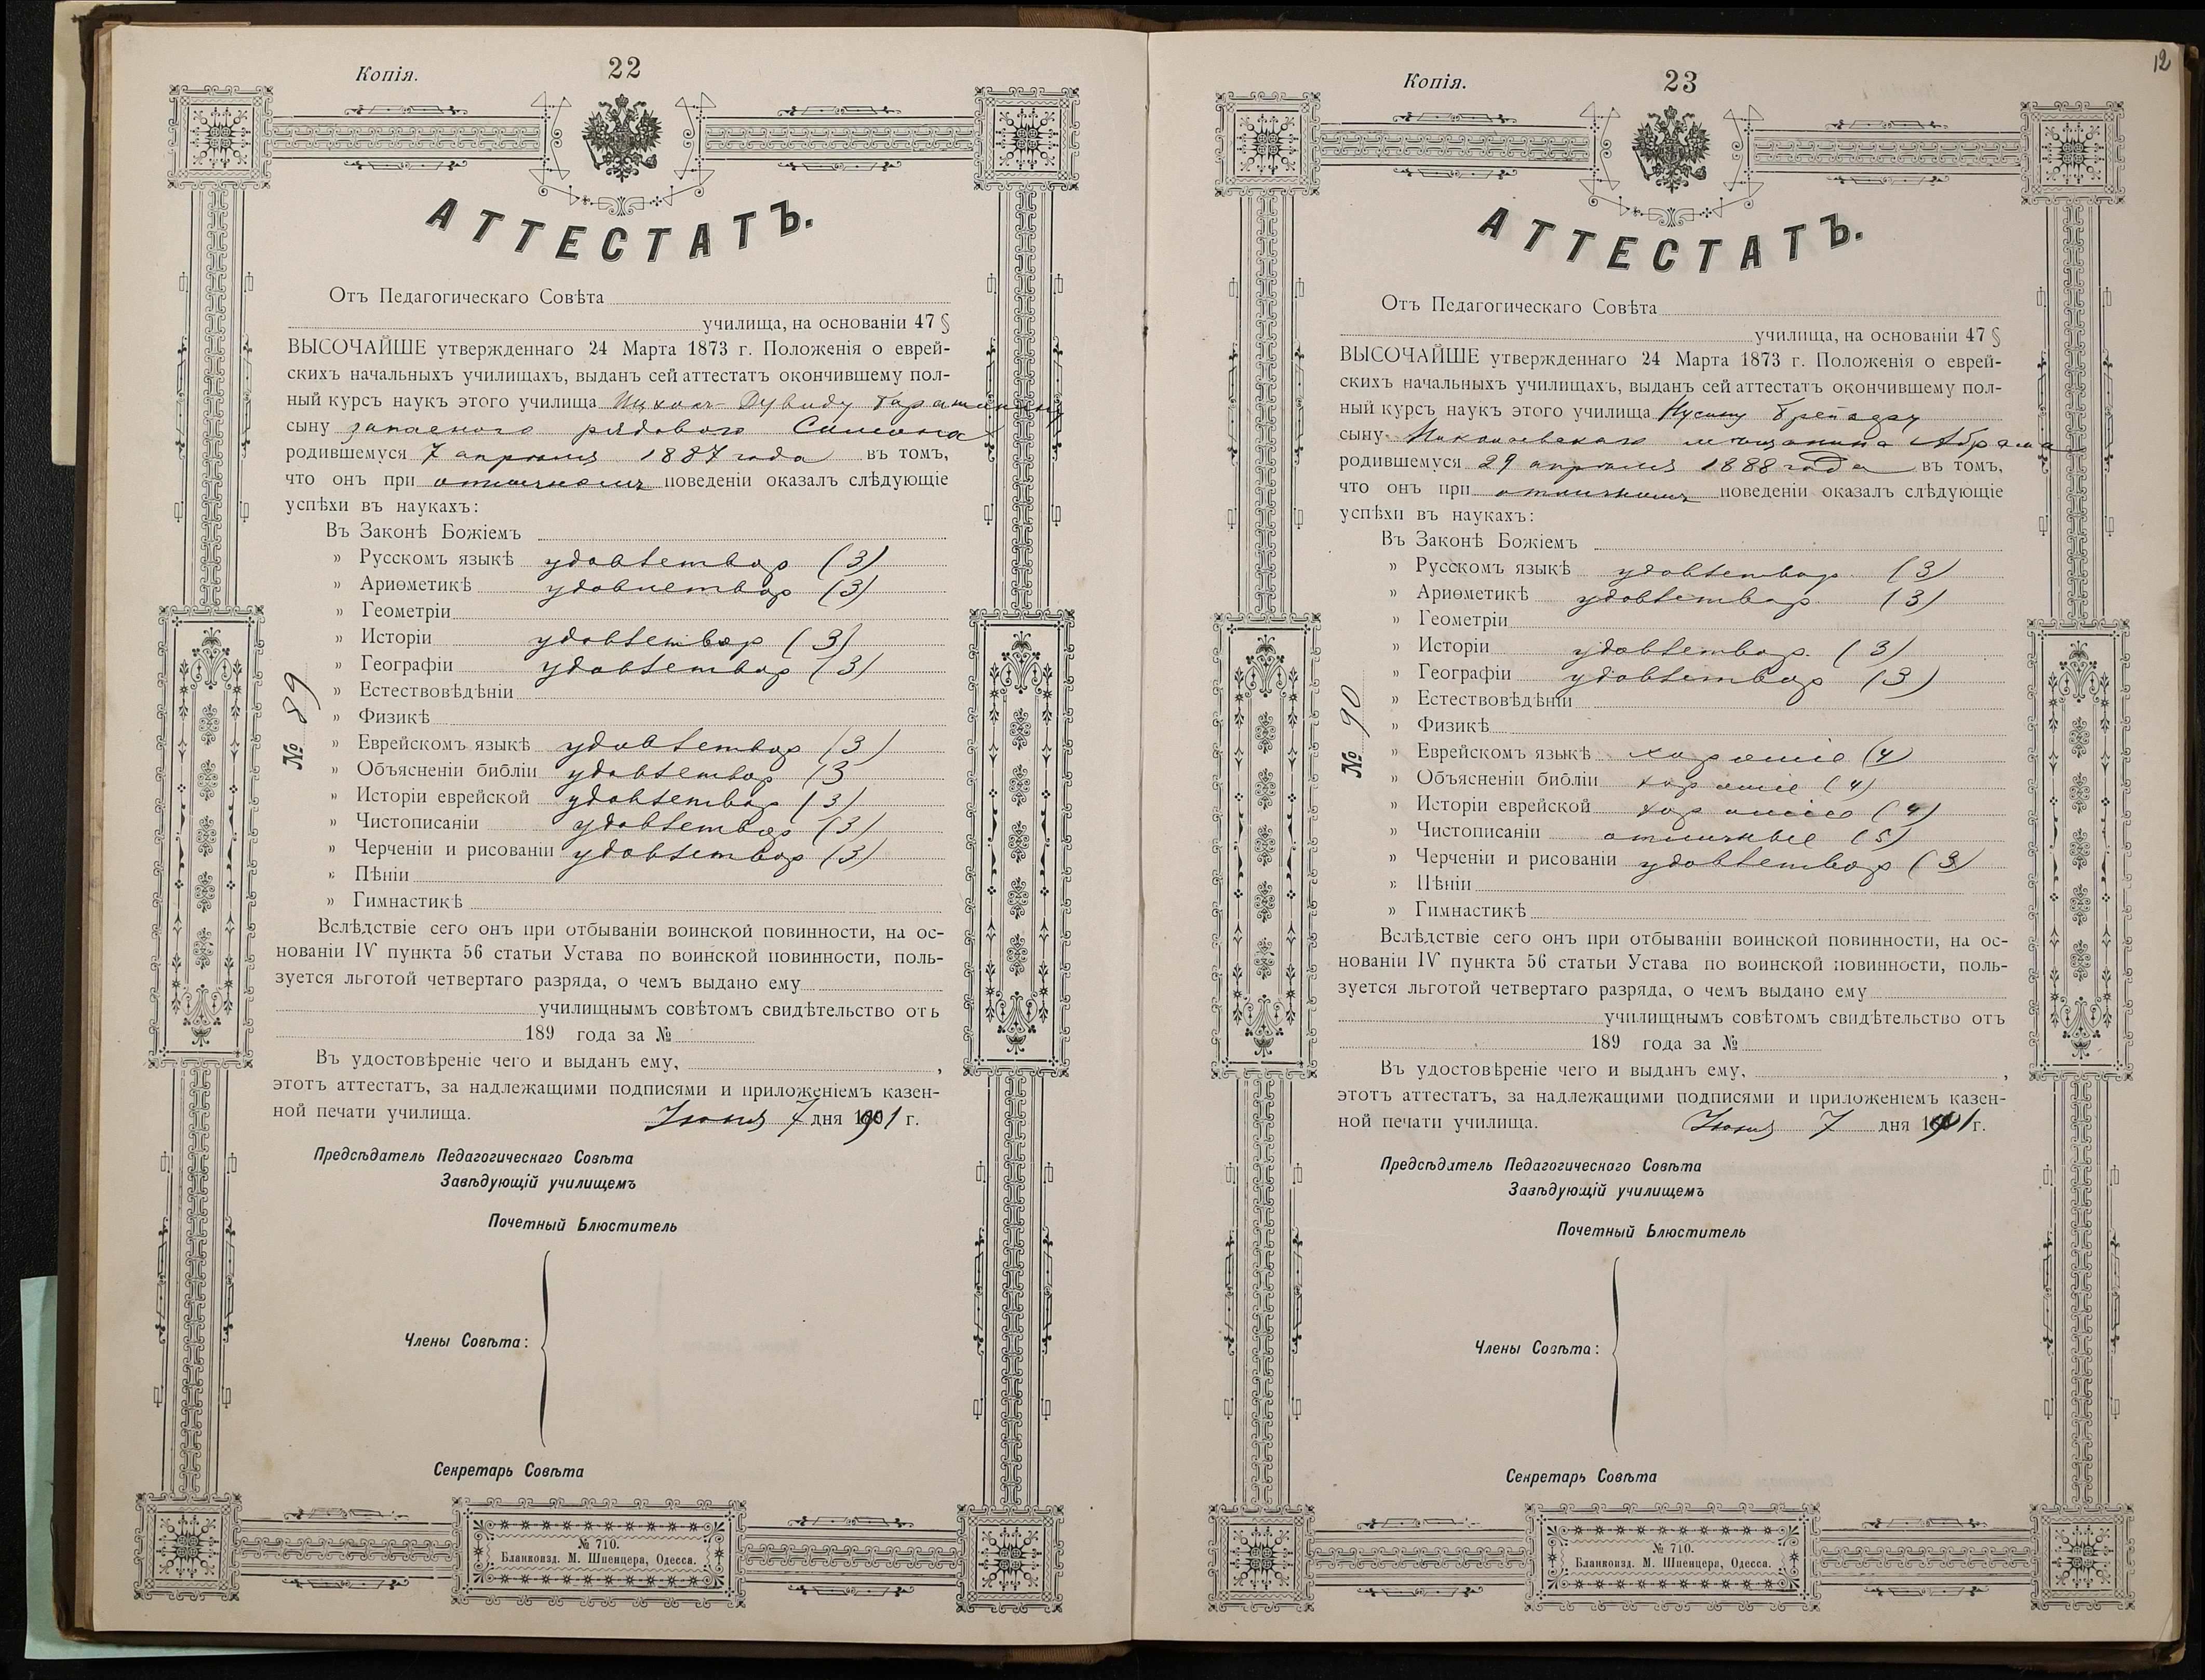 Копія.
22
АТТЕСТАТЪ.
Отъ Педагогическаго Совѣта
училища, на основаніи 47 §
ВЫСОЧАЙШЕ утвержденнаго 24 Марта 1873 г. Положенія о еврей-
скихъ начальныхъ училищахъ, выданъ сей аттестатъ окончившему пол-
ный курсъ наукъ этого училища Ицхок-Дувиду
сыну запасного рядового Самсона
родившемуся 7 апрѣля 1887 года въ томъ,
что онъ при отличномъ поведеніи оказалъ слѣдующіе
успѣхи въ наукахъ:
Въ Законѣ Божіемъ
» Русскомъ языкѣ удовлетвор (3)
» Ариѳметикѣ удовлетвор (3)
» Геометріи
» Исторіи удовлетвор (3)
» Географіи удовлетвор (3)
» Естествовѣдѣніи
» Физикѣ
» Еврейскомъ языкѣ удовлетвор (3)
» Объясненіи библіи удовлетвор (3
» Исторіи еврейской удовлетвор (3)
» Чистописаніи удовлетвор (3)
» Черченіи и рисованіи удовлетвор (3)
» Пѣніи
» Гимнастикѣ
№ 89
Вслѣдствіе сего онъ при отбываніи воинской повинности, на ос-
нованіи IV пункта 56 статьи Устава по воинской повинности, поль-
зуется льготой четвертаго разряда, о чемъ выдано ему
училищнымъ совѣтомъ свидѣтельство отъ
189 года за №
Въ удостовѣреніе чего и выданъ ему,,
этотъ аттестатъ, за надлежащими подписями и приложеніемъ казен-
ной печати училища. Іюня 7 дня 1901 г.
Предсѣдатель Педагогическаго Совѣта
Завѣдующій училищемъ
Почетный Блюститель
Члены Совѣта:
Секретарь Совѣта
№ 710.
Бланкоизд. М. Шпенцера, Одесса.
12
Копія.
23
АТТЕСТАТЪ.
Отъ Педагогическаго Совѣта
училища, на основаніи 47 §
ВЫСОЧАЙШЕ утвержденнаго 24 Марта 1873 г. Положенія о еврей-
скихъ начальныхъ училищахъ, выданъ сей аттестатъ окончившему пол-
ный курсъ наукъ этого училища Нусину
сыну Николаевскаго мѣщанина Абрама
родившемуся 29 апрѣля 1888 года въ томъ,
что онъ при отличномъ поведеніи оказалъ слѣдующіе
успѣхи въ наукахъ:
Въ Законѣ Божіемъ
» Русскомъ языкѣ удовлетвор. (3)
» Ариѳметикѣ удовлетвор. (3)
» Геометріи
» Исторіи удовлетвор. (3)
» Географіи удовлетвор (3)
» Естествовѣдѣніи
» Физикѣ
» Еврейскомъ языкѣ хорошіе (4)
» Объясненіи библіи хорошіе (4)
» Исторіи еврейской хорошіе (4)
» Чистописаніи отличные (5)
» Черченіи и рисованіи удовлетвор (3)
» Пѣніи
» Гимнастикѣ
№ 90
Вслѣдствіе сего онъ при отбываніи воинской повинности, на ос-
нованіи IV пункта 56 статьи Устава по воинской повинности, поль-
зуется льготой четвертаго разряда, о чемъ выдано ему
училищнымъ совѣтомъ свидѣтельство отъ
189 года за №
Въ удостовѣреніе чего и выданъ ему,,
этотъ аттестатъ, за надлежащими подписями и приложеніемъ казен-
ной печати училища. Іюня 7 дня 1901 г.
Предсѣдатель Педагогическаго Совѣта
Завѣдующій училищемъ
Почетный Блюститель
Члены Совѣта:
Секретарь Совѣта
№ 710.
Бланкоизд. М. Шпенцера, Одесса.